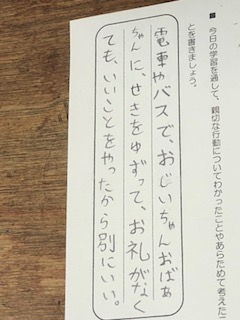 ■ 今日の学習を通して、親切な行動についてわかったことやあらためて考えたこ
とを書きましょう。
電車やバスで、おじいちゃんおばあ
ちゃんに、せきをゆずって、お礼がなく
ても、いいことをやったから別にいい。